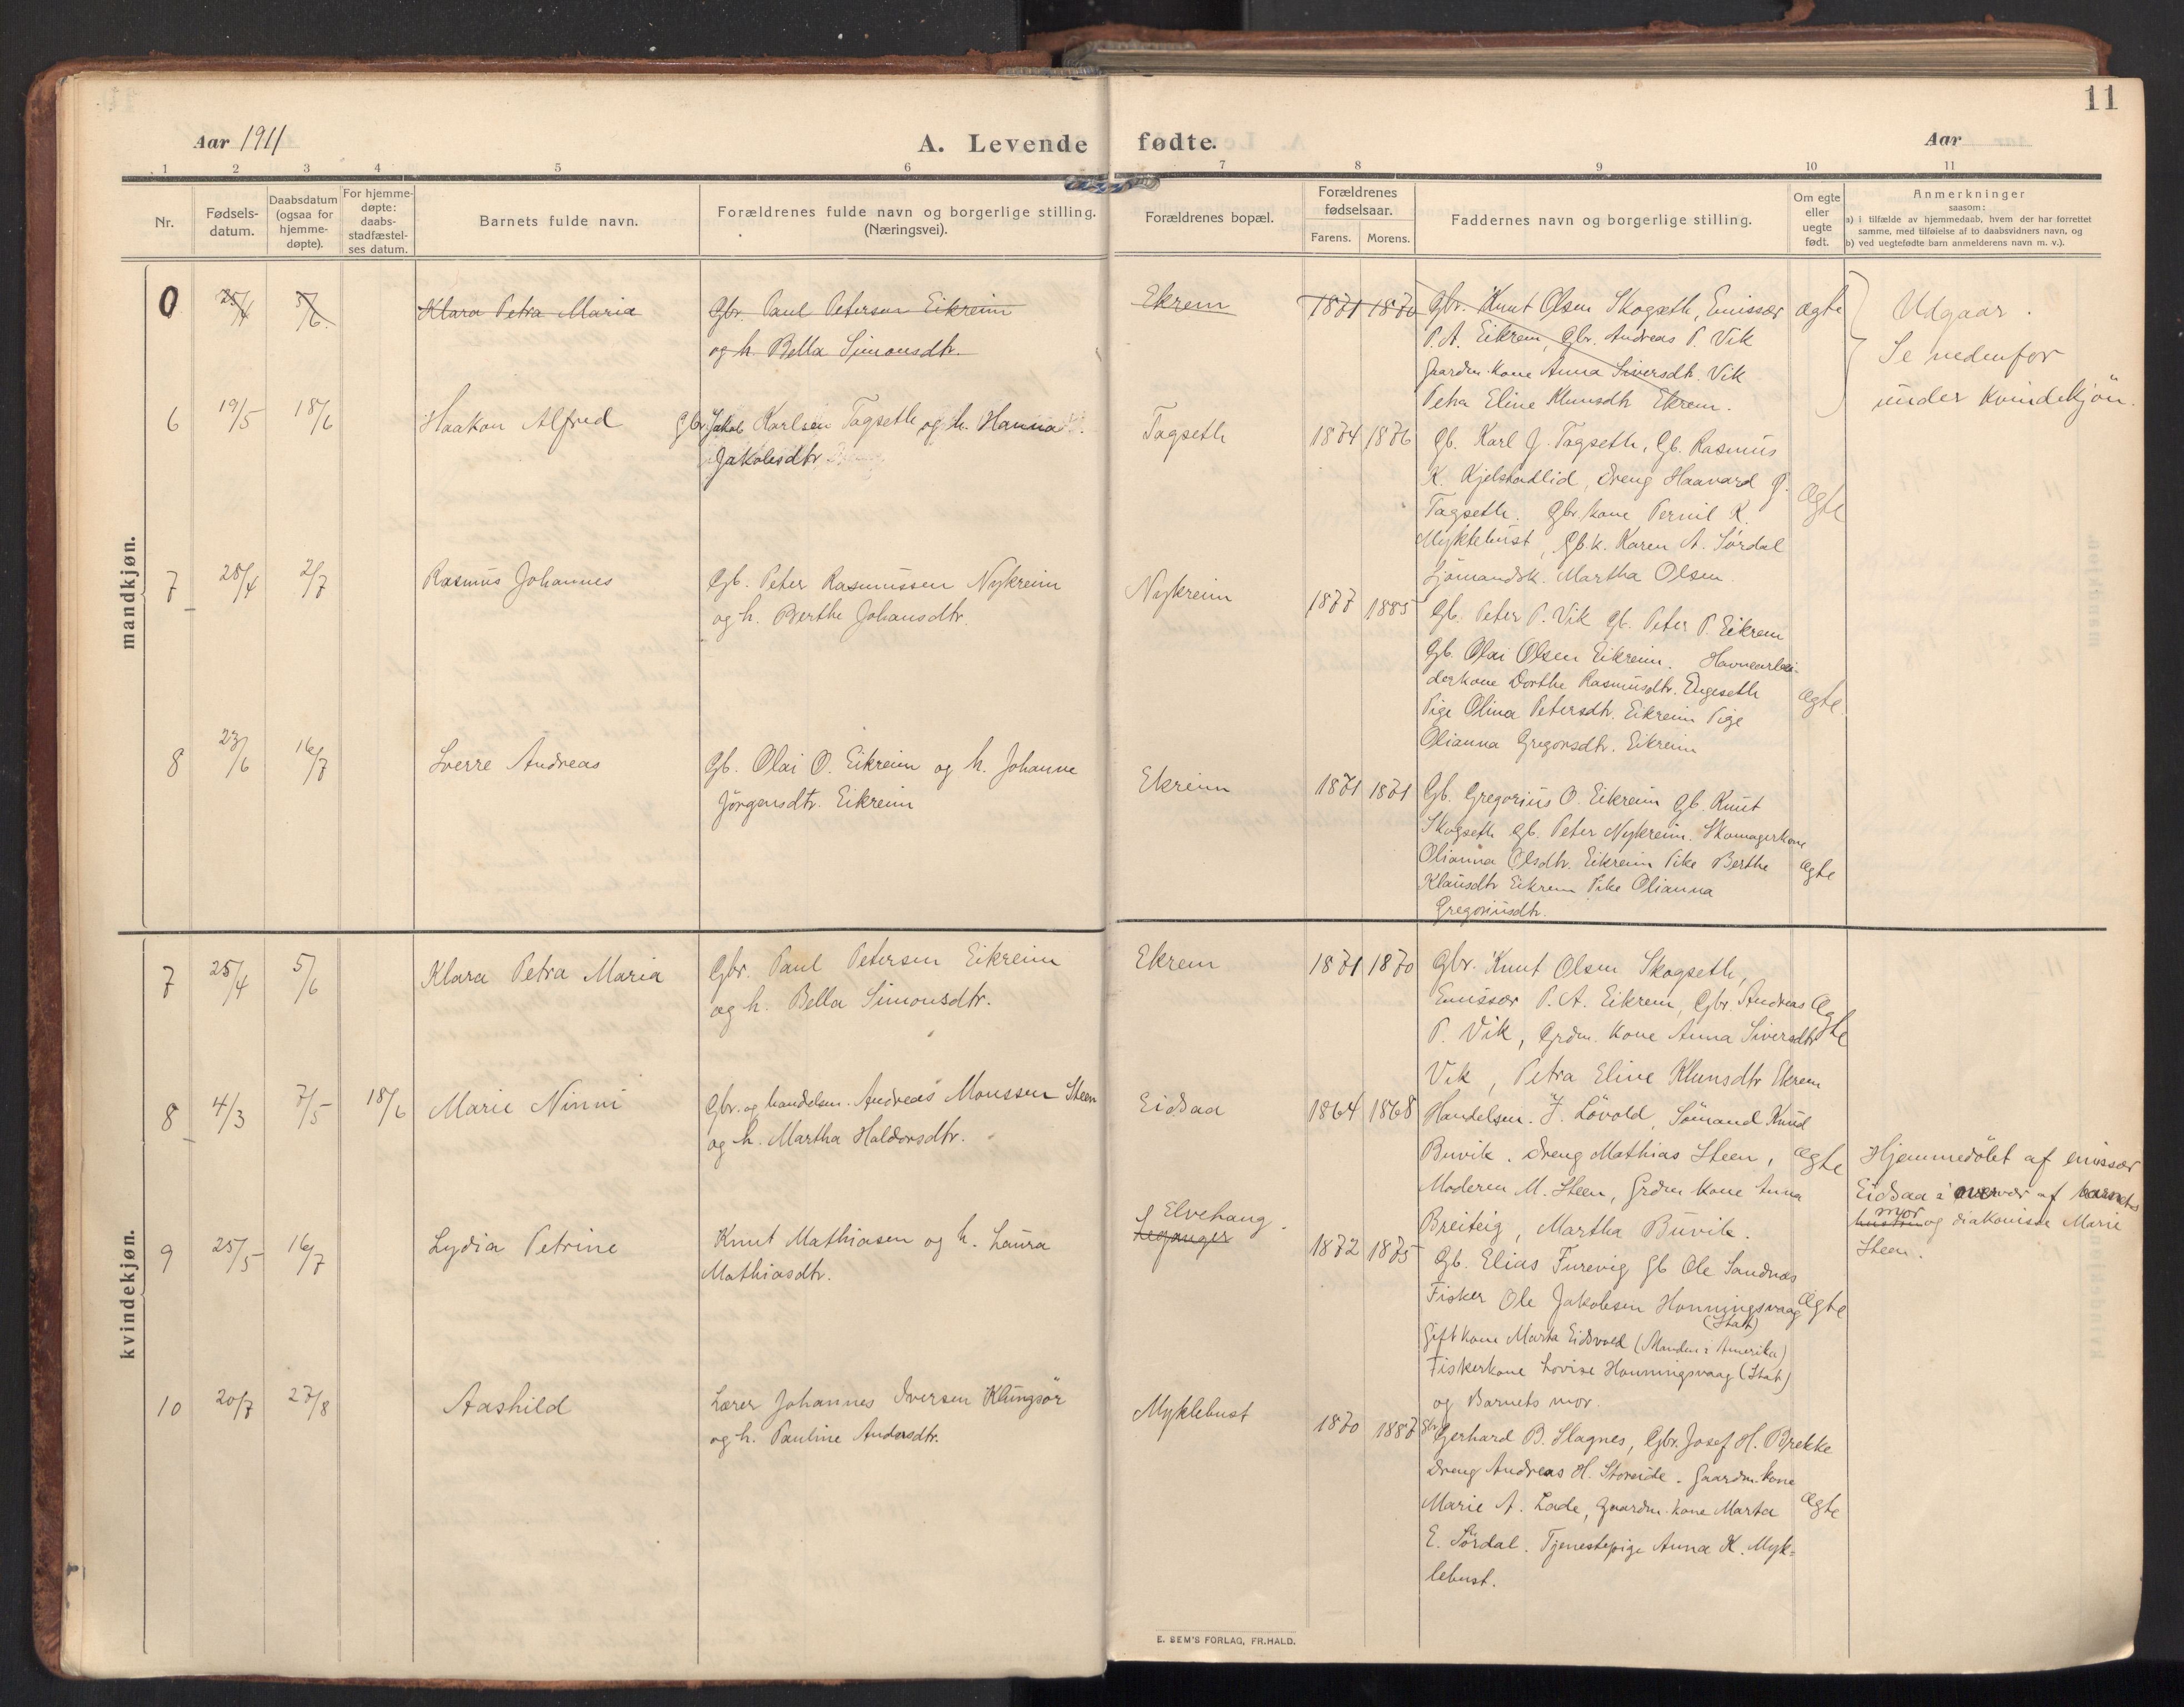 11
Aar 1911
A. Levende fødte.
Aar
1 2 3 4 5 6 7 8 9 10 11
Nr.
Fødsels-
datum.
Daabsdatum
(ogsaa for
hjemme-
døpte).
For hjemme-
døpte:
daabs-
stadfæstel-
ses datum.
Barnets fulde navn.
Forældrenes fulde navn og borgerlige stilling.
(Næringsvei).
Forældrenes bopæl.
Forældrenes
fødselsaar.
Farens. Morens.
Faddernes navn og borgerlige stilling.
Om egte
eller
uegte
født.
Anmerkninger
saasom:
a) i tilfælde av hjemmedaab, hvem der har forrettet
samme, med tilføielse af to daabsvidners navn, og
b) ved uegtefødte barn anmelderens navn m. v.).
mandkjøn.
0 25/4 5/6 Klara Petra Maria
Gbr. Paul Petersen Eikreim
og h. Bella Simonsdtr.
Ekrem 1871 1870
Gbr. Knut Olsen Skogseth, Emissær
P. A. Eikrem, Gbr. Andreas P. Vik
Gaardm. kone Anna Siversdtr. Vik
Petra Eline Klunsdtr Ekrem.
ægte
Udgaar.
Se nedenfor
under kvindekjön.
6 19/5 18/6 Haakon Alfred
Gbr. Jakob Karlsen Tagseth og h. Hanna
Jakobsdtr
Tagseth 1874 1876
Gb. Karl J. Tagseth, Gb. Rasmus
K. Kjelstadlid, Dreng Haavard G.
Tagseth. Gbr. kone Pernil K.
Myklebust, Gb.k. Karen A. Sørdal
Sjömandsk. Martha Olsen.
ægte
7 28/4 2/7 Rasmus Johannes
Gb. Peter Rasmussen Nykreim
og h. Berthe Johansdtr.
Nykreim 1877 1885
Gb. Peter P. Vik Gb. Peter P. Eikrem
Gb. Olai Olsen Eikreim. Havnearbei-
derkone Dorthe Rasmusdtr. Engeseth
Pige Olina Petersdtr. Eikreim Pige
Olianna Gregorsdtr. Eikreim
ægte
8 23/6 16/7 Sverre Andreas
Gb. Olai O. Eikreim og h. Johanne
Jörgensdtr. Eikreim
Ekreim 1871 1871
Gb. Gregorius O. Eikreim Gb. Knut
Skogseth Gb. Peter Nykreim. Skomagerkone
Olianna Olsdtr. Eikreim Pike Berthe
Klausdtr Eikrem Pike Olianna
Gregoriusdtr.
ægte
kvindekjøn.
7 25/4 5/6 Klara Petra Maria
Gbr. Paul Petersen Eikreim
og h. Bella Simonsdtr.
Ekrem 1871 1870
Gbr. Knut Olsen Skogseth,
Emissær P. A. Eikrem, Gbr. Andreas
P. Vik, Grdm. kone Anna Siversdtr
Vik, Petra Eline Klunsdtr Ekrem
ægte
8 4/3 7/5 18/6 Marie Ninni
Gbr. og handelsm. Andreas Monssen Steen
og h. Martha Haldorsdtr.
Eidsaa 1864 1868
Handelsm. J. Lövold, Sömand Knud
Buvik. Dreng Mathias Steen,
Moderen M. Steen, Grdm kone Anna
Breiteig, Martha Buvik.
ægte
Hjemmedöbt af emissær
Eidsaa i overvær af barnets
mor og diakonisse Marie
Steen.
9 25/5 16/7 Lydia Petrine
Knut Mathiasen og h. Laura
Mathiasdtr.
Elvehaug.
Leganger
1872 1875
Gb. Elias Furevig Gb Ole Sandnes
Fisker Ole Jakobsen Honningsvaag
(Stat)
Gift kone Marta Eidsvold (Manden i Amerika)
Fiskerkone Lovise Honningsvaag (Stat)
og Barnets mor.
ægte
10 20/7 27/8 Aashild
Lærer Johannes Iversen Klungsör
og h. Pauline Andersdtr.
Myklebust 1870 1887
Gbr. Gerhard B. Slagnes, Gbr. Josef H. Brekke
Dreng Andreas H. Storeide. Gaardm. kone
Marie A. Lade, Gaardm. kone Marta
E. Sördal. Tjenestepige Anna K. Myk=
lebust.
ægte
E. SEM'S FORLAG, FR.HALD.